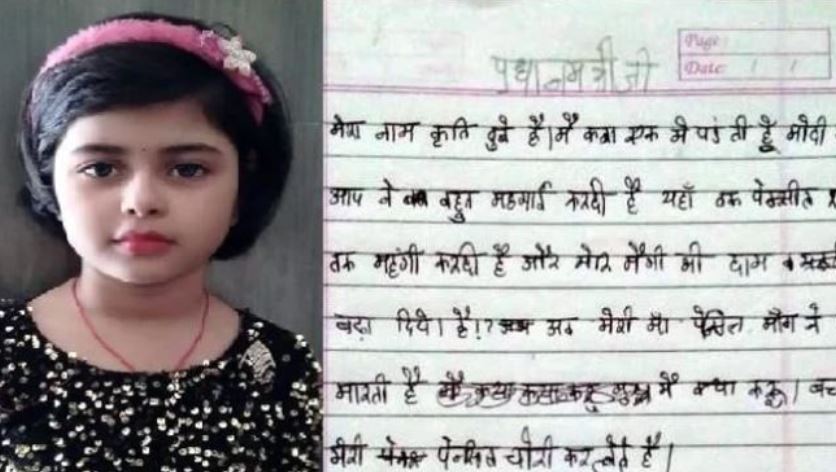 Page:
Date: / /
प्रधानमंत्री जी
मेरा नाम कृति दुबे है। मैं कक्षा एक मे पढ़ ती हूँ मोदी
आप ने बहुत महगाई करदी है यहाँ तक पेन्सील
तक महंगी करदी है और मेरि मैगी की दाम
बढ़ा दिये। है!? अब मेरी माँ पेंसिल माँग ने
मारती है मैं क्या करू।
मेरी पेन्सिल चोरी कर लेते है।